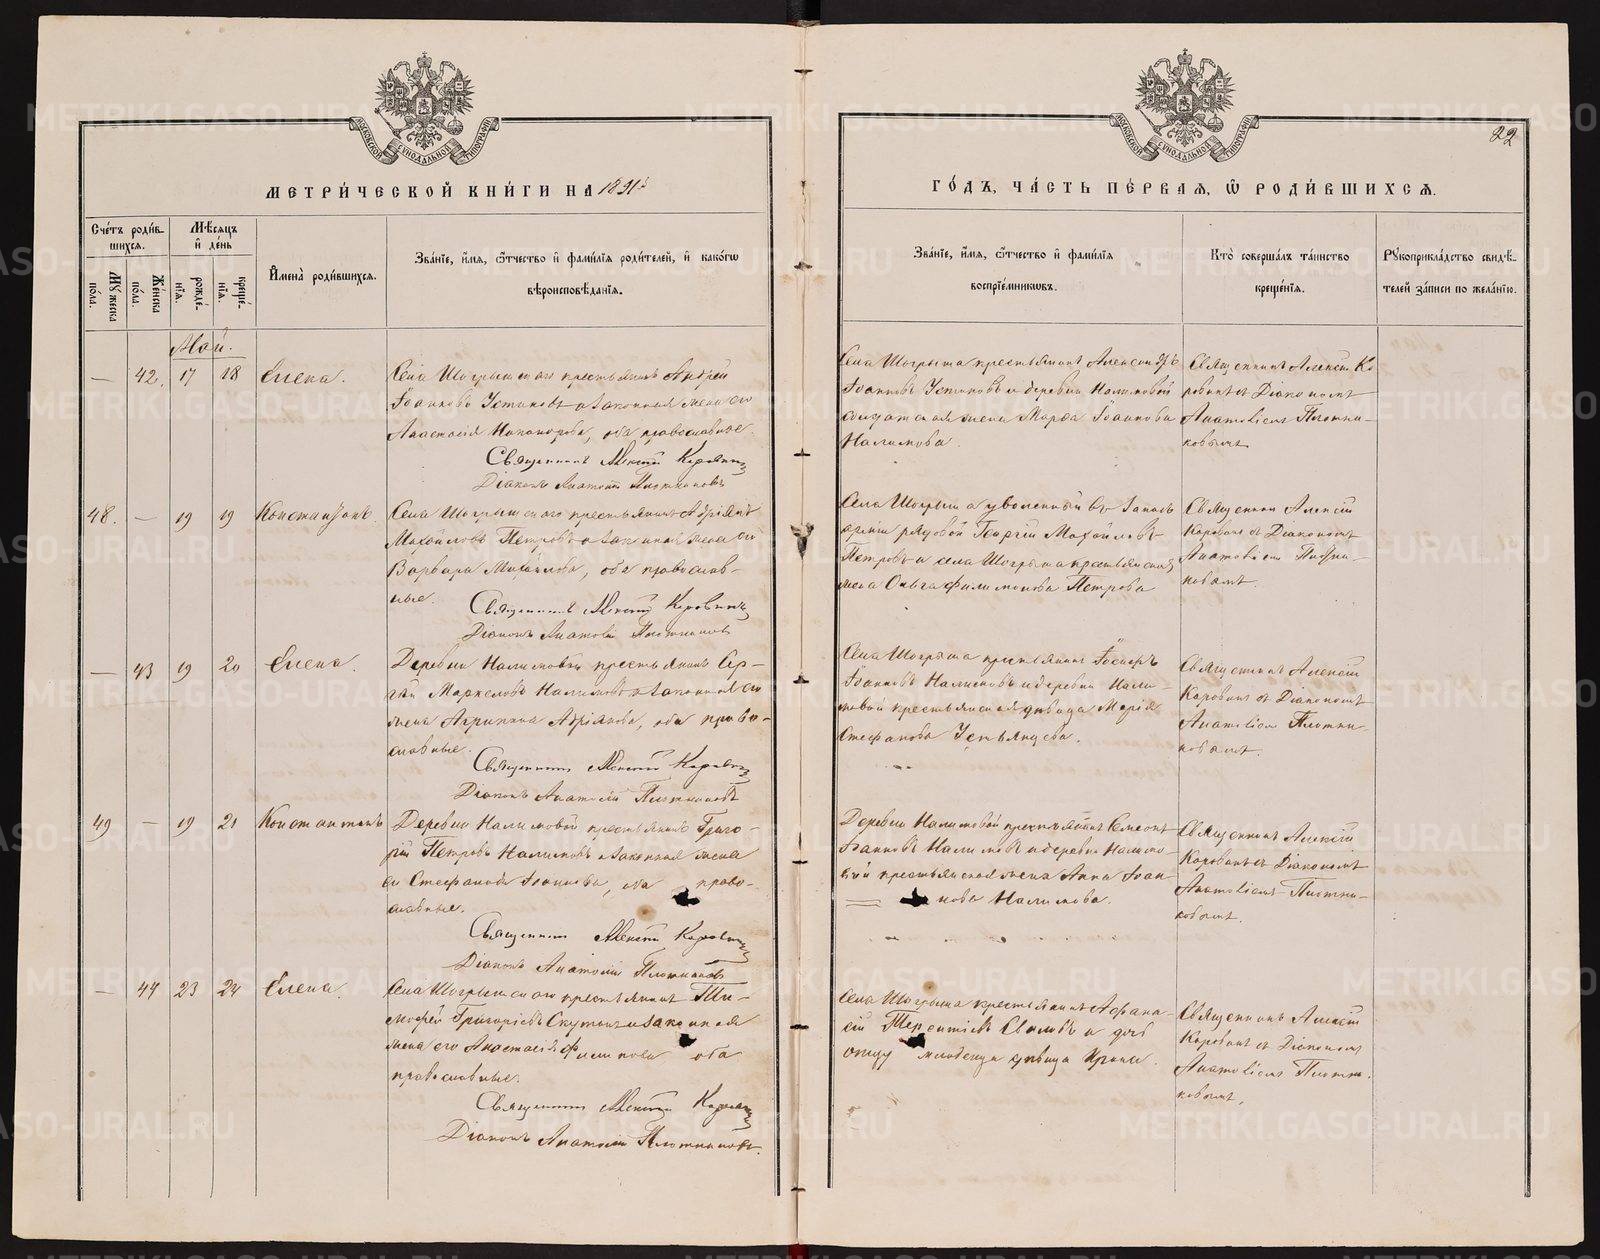 МОСКОВСКОЙ СѴНОДАЛЬНОЙ ТИПОГРАФІИ
МЕТРИ́ЧЕСКОЙ КНИ́ГИ НА 1891й
Сче́тъ роди́вшихся.
Мѣ́сяцъ и҆ де́нь
Мꙋ́жеска по́ла.
Же́нска по́ла.
рожде́нїя.
креще́нїя.
И҆мена̀ роди́вшихся.
Зва́нїе, и҆́мя, ѻ҆́тчество и҆ фамѝлїя роди́телей, и҆ како́гѡ
вѣроисповѣ́данїя.
Май.
— 42. 17 18 Елена.
Села Шогрышскаго крестьянинъ Андрей
Іоанновъ Устиновъ и законная жена его
Анастасія Никанорова, оба православные.
Священникъ Алексій Коровинъ
Діаконъ Анатолій Плотниковъ
48. — 19 19 Константинъ.
Села Шогрышскаго крестьянинъ Адріанъ
Михайловъ Петровъ и законная жена его
Варвара Михайлова, оба православ-
ные.
Священникъ Алексій Коровинъ
Діаконъ Анатолій Плотниковъ
— 43 19 20 Елена.
Деревни Налимовой крестьянинъ Сер-
гій Маркеловъ Налимовъ и законная его
жена Агрипина Адріанова, оба право-
славные.
Священникъ Алексій Коровинъ
Діаконъ Анатолій Плотниковъ
49 — 19 21 Константинъ
Деревни Налимовой крестьянинъ Григо-
рій Петровъ Налимовъ и законная жена
его Стефанида Іоаннова, оба право-
славные.
Священникъ Алексій Коровинъ
Діаконъ Анатолій Плотниковъ
— 44 23 24 Елена.
Села Шогрышскаго крестьянинъ Ти-
мофей Григоріевъ Скутинъ и законная
жена его Анастасія Филипова оба
православные.
Священникъ Алексій Коровинъ
Діаконъ Анатолій Плотниковъ.
22
МОСКОВСКОЙ СѴНОДАЛЬНОЙ ТИПОГРАФІИ
ГО́ДЪ, ЧА́СТЬ ПЕ́РВАЯ, Ѽ РОДИ́ВШИХСЯ.
Зва́нїе, и҆́мя, ѻ҆́тчество и҆ фамѝлїя
воспрїе́мникѡвъ.
Кто̀ соверша́лъ та́инство
креще́нїя.
Рꙋкоприкла́дство свидѣ́-
телей за́писи по жела́нїю.
Села Шогрыша крестьянинъ Александръ
Іоанновъ Устиновъ и деревни Налимовой
солдатская жена Марѳа Іоаннова
Налимова.
Священникъ Алексій Ко
ровинъ съ Діакономъ
Анатоліемъ Плотни-
ковымъ
Села Шогрыша уволенный въ запасъ
арміи рядовой Георгій Михайловъ
Петровъ и села Шогрыша крестьянская
жена Ольга Филимонова Петрова
Священникъ Алексій
Коровинъ съ Діакономъ
Анатоліемъ Плотни-
ковымъ.
Села Шогрыша крестьянинъ Іосифъ
Іоанновъ Налимовъ и деревни Нали-
мовой крестьянская дѣвица Марія
Стефанова Устьянцева.
Священникъ Алексій
Коровинъ съ Діакономъ
Анатоліемъ Плотни-
ковымъ.
Деревни Налимовой крестьянинъ Симеонъ
Іоанновъ Налимовъ и деревни Налимо-
вой крестьянская жена Анна Іоан-
нова Налимова.
Священникъ Алексій
Коровинъ съ Діакономъ
Анатоліемъ Плотни-
ковымъ.
Села Шогрыша крестьянинъ Аѳана-
сій Терентіевъ и дочь
отцу младенца дѣвица Ирина.
Священникъ Алексій
Коровинъ съ Діакономъ
Анатоліемъ Плотни-
ковымъ.
METRIKI.GASO-URAL.RU